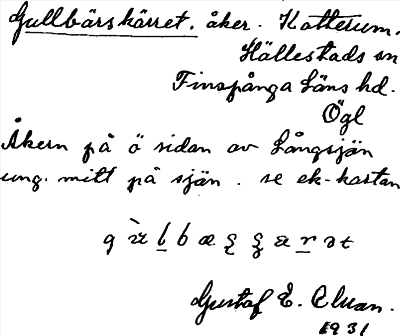 Gullbärskärret. åker. Katterum.
Hällestads sn
Finspånga Läns hd.
Ögl
Åkern på ö sidan av Långsjön
ung. mitt på sjön. se ek-kartan
Gustaf E.
1931